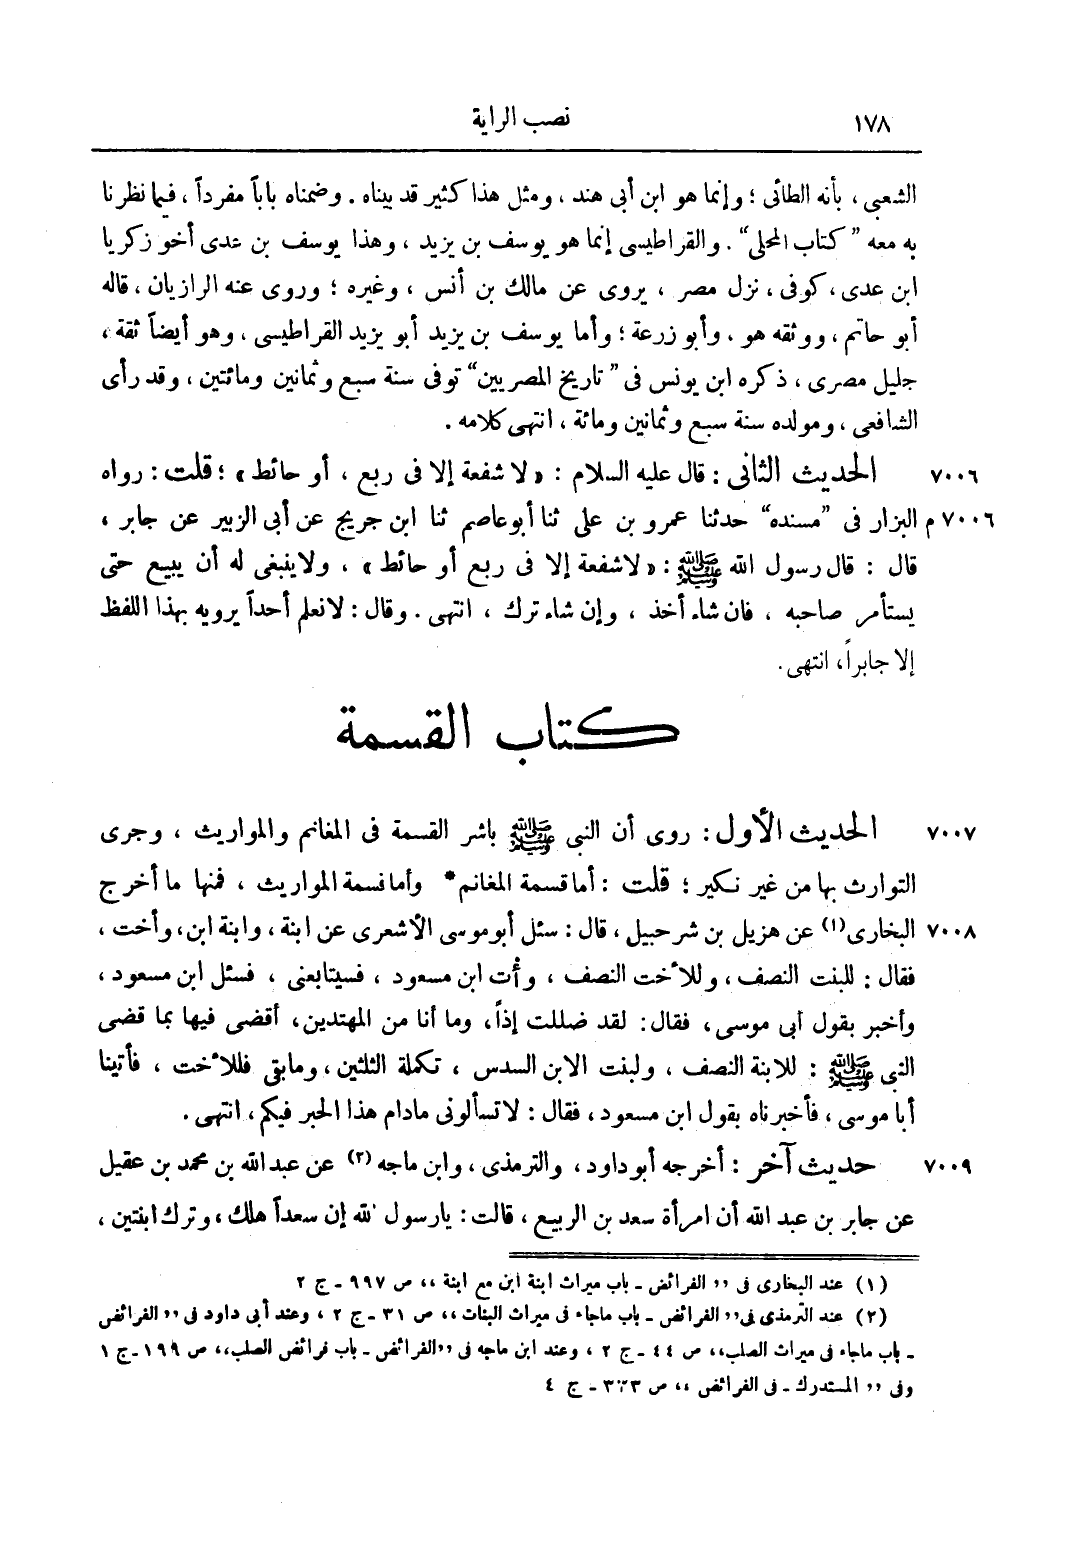 ١٧٨ نصب الراية
الشعبى ، بأنه الطائى ؛ وإنما هو ابن أبى هند ، ومثل هذا كثير قد بيناه . وضمناه باباً مفرداً ، فيما نظرنا
به معه " كتاب المحلى " . والقراطيسى إنما هو يوسف بن يزيد ، وهذا يوسف بن عدى أخو زكريا
ابن عدى ، كوفى ، نزل مصر ، يروى عن مالك بن أنس ، وغيره ؛ وروى عنه الرازيان ، قاله
أبو حاتم ، ووثقه هو ، وأبو زرعة ؛ وأما يوسف بن يزيد أبو يزيد القراطيسى ، وهو أيضاً ثقة ،
جليل مصرى ، ذكره ابن يونس فى " تاريخ المصريين " توفى سنة سبع وثمانين ومائتين ، وقد رأى
الشافعى ، ومولده سنة سبع وثمانين ومائة ، انتهى كلامه .
٧٠٠٦ الحديث الثانى : قال عليه السلام : « لا شفعة إلا فى ربع ، أو حائط » ؛ قلت : رواه
٧٠٠٦ م البزار فى " مسنده " حدثنا عمرو بن على ثنا أبو عاصم ثنا ابن جريج عن أبى الزبير عن جابر ،
قال : قال رسول الله ﷺ : « لا شفعة إلا فى ربع أو حائط » ، ولا ينبغى له أن يبيع حتى
يستأمر صاحبه ، فان شاء أخذ ، وإن شاء ترك ، انتهى . وقال : لا نعلم أحداً يرويه بهذا اللفظ
إلا جابراً ، انتهى .
كتاب القسمة
٧٠٠٧ الحديث الأول : روى أن النبى ﷺ باشر القسمة فى المغانم والمواريث ، وجرى
التوارث بها من غير نكير ؛ قلت : أما قسمة المغانم * وأما قسمة المواريث ، فمنها ما أخرج
٧٠٠٨ البخارى (١) عن هزيل بن شرحبيل ، قال : سئل أبو موسى الأشعرى عن ابنة ، وابنة ابن ، وأخت ،
فقال : للبنت النصف ، وللأخت النصف ، وأت ابن مسعود ، فسيتابعنى ، فسئل ابن مسعود ،
وأخبر بقول أبى موسى ، فقال : لقد ضللت إذاً ، وما أنا من المهتدين ، أقضى فيها بما قضى
النبى ﷺ : للابنة النصف ، ولبنت الابن السدس ، تكملة الثلثين ، وما بقى فللأخت ، فأتينا
أبا موسى ، فأخبرناه بقول ابن مسعود ، فقال : لا تسألونى مادام هذا الحبر فيكم ، انتهى .
٧٠٠٩ حديث آخر : أخرجه أبو داود ، والترمذى ، وابن ماجه (٢) عن عبد الله بن محمد بن عقيل
عن جابر بن عبد الله أن امرأة سعد بن الربيع ، قالت : يارسول الله إن سعداً هلك ، وترك ابنتين ،
(١) عند البخارى فى ,, الفرائض ـ باب ميراث ابنة ابن مع ابنة ،، ص ٩٩٧ ـ ج ٢
(٢) عند الترمذى فى ,, الفرائض ـ باب ماجاء فى ميراث البنات ،، ص ٣١ ـ ج ٢ ، وعند أبى داود فى ,, الفرائض
ـ باب ماجاء فى ميراث الصلب ،، ص ٤٤ ـ ج ٢ ، وعند ابن ماجه فى ,, الفرائض ـ باب فرائض الصلب ،، ص ١٩٩ ـ ج ١
وفى ,, المستدرك ـ فى الفرائض ،، ص ـ ج ٤